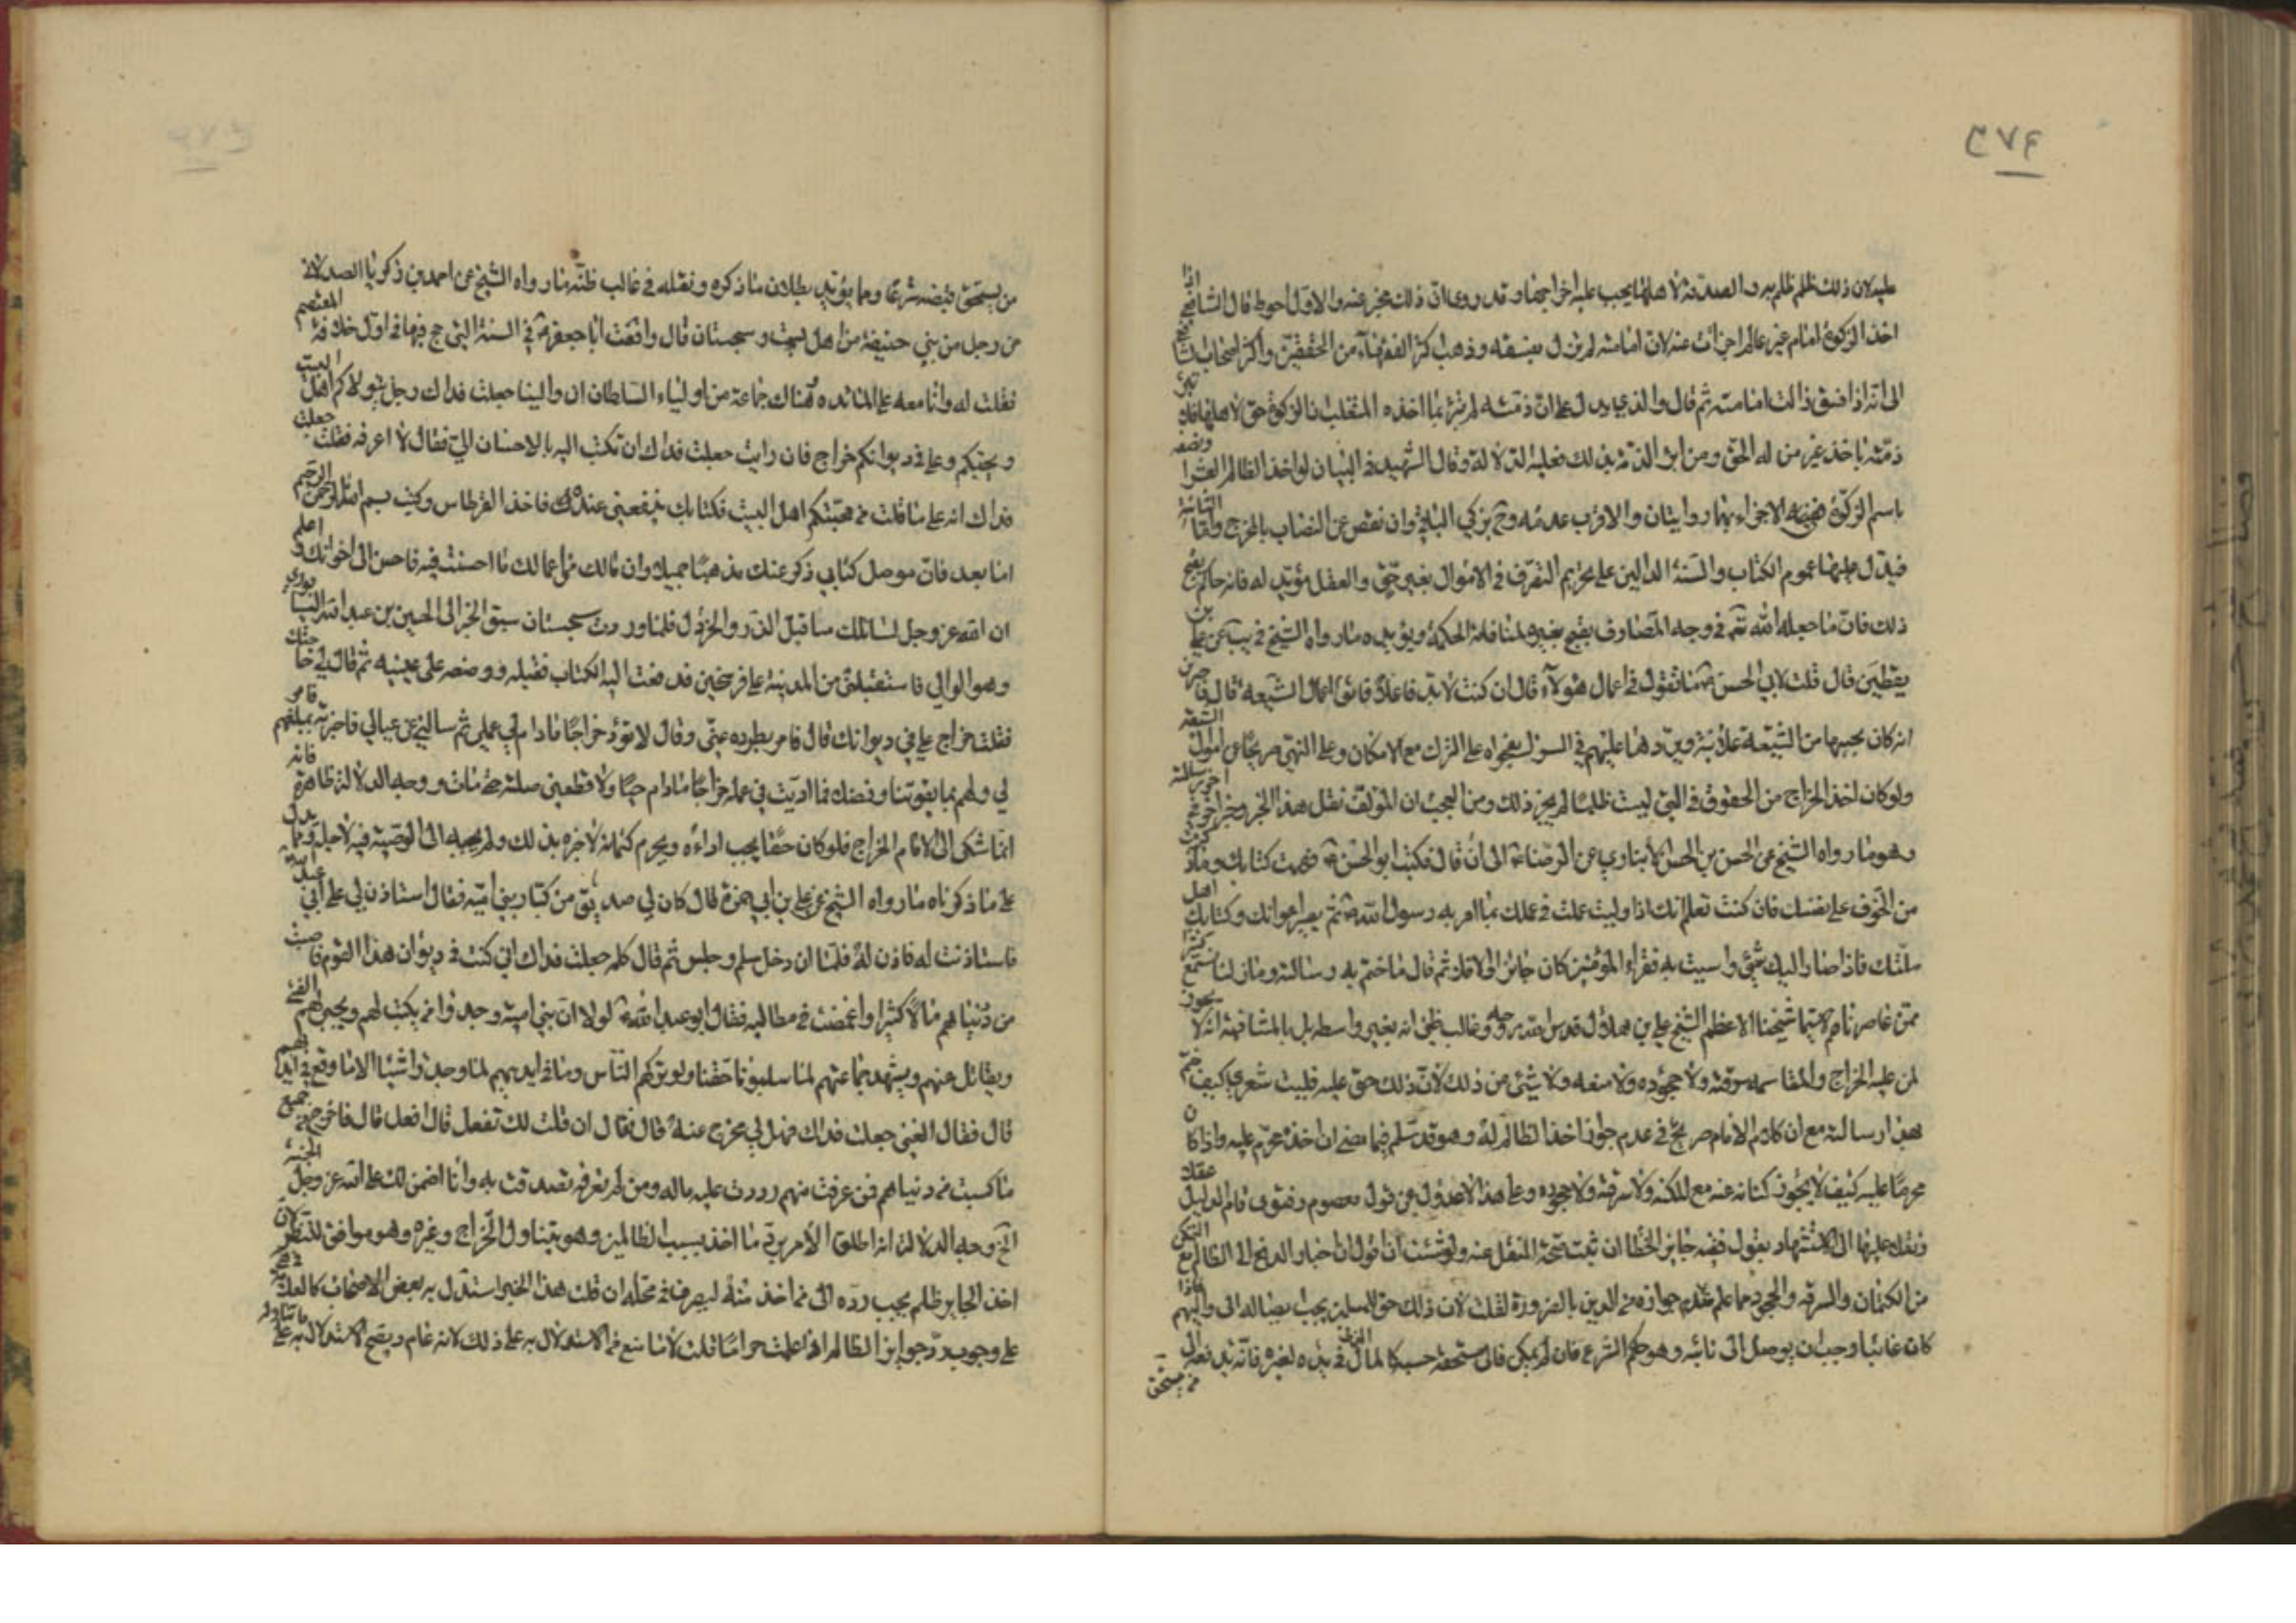 ٣٧۴
عليه لان ذلك ظلم ظلم به والصدقة لاهلها يجب عليه اخراجها وقد روى ان ذلك مجز عنه والاول احوط قال الشافعي اذا
اخذ الزكوة امام غير عادل اجزأت عنه لان امامته لم تزل بفسقه وذهب اكثر الفقهاء من المحققين واكثر اصحاب الشافعي
الى انه اذا فسق زالت امامته ثم قال والذي يدل على ان ذمته لم تبرء بما اخذه المتغلب ان الزكوة حق لاهلها فلا تبرئ
ذمته باخذ غير من له الحق ومن ابرء الذمة بذلك فعليه الدلالة وقال الشهيد في البيان لو اخذ الظالم العشر او نصفه
باسم الزكوة ففي الاجزاء بها روايتان والاقرب عدمه وح يزكي الباقي وان نقص عن النصاب بالمخرج واما الثانية
فيدل عليها عموم الكتاب والسنة الدالين على تحريم التصرف في الاموال بغير حق والعقل مؤيد له فانه حاكم بقبح
ذلك فان ما جعله الله تع في وجه المصارف يقبح تغييره لمنافاته الحكمة ويؤيده ما رواه الشيخ في يب عن علي بن
يقطين قال قلت لابي الحسن ع ما تقول في اعمال هؤلاء قال ان كنت لا بد فاعلا فاتق اموال الشيعة قال فاخبرني
انه كان يجبيها من الشيعة علانية ويردها عليهم في السر دل بفحواه على الترك مع الامكان وعلى النهي صريحا عن اموال الشيعة
ولو كان اخذ الخراج من الحقوق التي ليست ظلما لم يجز ذلك ومن العجب ان المؤلف نقل هذا الخبر وخبرا اخر في اخر رسالته
وهو ما رواه الشيخ عن الحسن بن الحسين الانباري عن الرضا ع الى ان قال فكتب ابو الحسن ع فهمت كتابك وما ذكرت من
من الخوف على نفسك فان كنت تعلم انك اذا وليت عملت في عملك بما امر به رسول الله ص ثم يصير اعوانك وكتابك اهل
ملتك فاذا صار اليك شئ واسيت به فقراء المؤمنين كان جائزا والا فلا ثم قال ما ختم به رسالته وما زلنا نسمع كثيرا
ممن عاصرناهم لا سيما شيخنا الاعظم الشيخ علي بن هلال قدس الله روحه وغالب ظني انه بغير واسطة بل بالمشافهة انه لا يجوز
لمن عليه الخراج والمقاسمة سرقته ولا جحوده ولا منعه ولا شئ من ذلك لان ذلك حق عليه فليت شعري كيف ختم
بهذا رسالته مع ان كلام الامام صريح في عدم جواز اخذ الظالم له وهو قد سلم فيما مضى ان اخذه محرم عليه واذا كان
محرما عليه كيف لا يجوز كتمانه عنه مع المكنة ولا سرقته ولا جحوده وهل هذا الا عدول عن قول معصوم وفتوى قام الدليل عقلا
ونقلا عليها الى الاستشهاد بقول فقيه جايز الخطا ان ثبت صحة النقل عنه ولو شئت ان اقول ان اختيار الدفع الى الظالم مع التمكن
من الكتمان والسرقة والجحود مما علم عدم جوازه من الدين بالضرورة لقلت لان ذلك حق للمسلمين يجب ايصاله الى واليهم فاذا
كان غائبا وجب ان يوصل الى نائبه وهو حاكم الشرع فان لم يمكن فالى مستحقه حسبة كالمال الذي في يده لغيره فانه بدفعه الى
من يستحق
من يستحق قبضه شرعا ومما يؤيد بطلان ما ذكره ونقله في غالب ظنه ما رواه الشيخ عن احمد بن زكريا الصيدلاني
عن رجل من بني حنيفة من اهل بست وسجستان قال وافقت ابا جعفر ع في السنة التي حج فيها في اول خلافة المعتصم
فقلت له وانا معه على المائدة وهناك جماعة من اولياء السلطان ان والينا جعلت فداك رجل يتولاكم اهل البيت
ويحبكم وعلي في ديوانكم خراج فان رايت جعلت فداك ان تكتب اليه بالاحسان الي فقال لا اعرفه فقلت جعلت
فداك انه على ما قلت من محبتكم اهل البيت فكتابك ينفعني عنده فاخذ القرطاس وكتب بسم الله الرحمن الرحيم
اما بعد فان موصل كتابي ذكر عنك مذهبا جميلا وان مالك من اعمالك ما احسنت فيه فاحسن الى اخوانك واعلم
ان الله عز وجل سائلك مثاقيل الذر والخردل فلما وردت سجستان سبق الخبر الى الحسين بن عبد الله النيسابوري
وهو الوالي فاستقبلني من المدينة على فرسخين فدفعت اليه الكتاب فقبله ووضعه على عينيه ثم قال لي حاجتك
فقلت خراج علي في ديوانك قال فامر بطرده عني وقال لا تؤد خراجا ما دام لي عمل ثم سالني عن عيالي فاخبرته بمبلغهم فامر
لي ولهم بما يقوتنا وفضلا فما اديت في عمله خراجا ما دام حيا ولا قطعني صلته حتى مات ووجه الدلالة ظاهرة فانه
انما شكى الى الامام الخراج فلو كان حقا يجب اداءه ويحرم كتمانه لاخبره بذلك ولم يجبه الى الوصية فيه لاجله ومما يدل
على ما ذكرناه ما رواه الشيخ عن علي بن ابي حمزة قال كان لي صديق من كتاب بني امية فقال استاذن لي على ابي عبد الله
فاستاذنت له فاذن له فلما ان دخل سلم وجلس ثم قال له جعلت فداك اني كنت في ديوان هذا القوم فاصبت
من دنياهم مالا كثيرا واغمضت في مطالبه فقال ابو عبد الله ع لولا ان بني امية وجدوا من يكتب لهم ويجبي لهم الفئ
ويقاتل عنهم ويشهد جماعتهم لما سلبونا حقنا ولو تركهم الناس وما في ايديهم لما وجدوا شيئا الا ما وقع في ايديهم
قال فقال الفتى جعلت فداك فهل لي مخرج عنه قال فقال ان قلت لك تفعل قال افعل قال فاخرج من جميع
ما كسبت من دنياهم فمن عرفت منهم رددت عليه ماله ومن لم تعرفه تصدقت به وانا اضمن لك على الله عز وجل الجنة
الخ وجه الدلالة انه اطلق الامر برد ما اخذ بسبب الظالمين وهو يتناول الخراج وغيره وهو موافق للنظر لان
اخذ الجاير ظلم يجب رده الى من اخذ منه ليصرف في محله ان قلت هذا الخبر استدل به بعض الاصحاب كالعلامة
على وجوب رد جوايز الظالم اذا علمت حراما قلت لا مانع من الاستدلال به على ذلك لانه عام ويصح الاستدلال به على